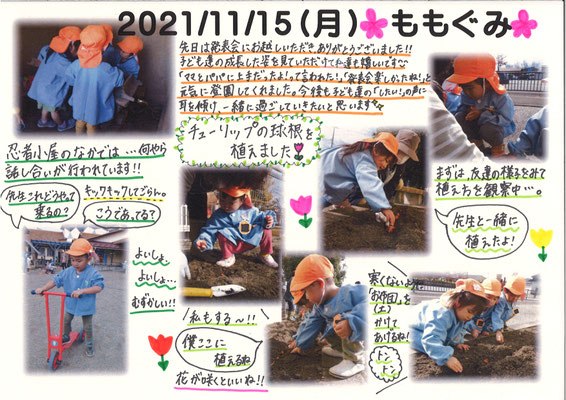 2021/11/15(月)ももぐみ
先日は発表会にお越しいただきありがとうございました!!
子ども達の成長した姿を見ていただけて私達も嬉しいです
「ママとパパに上手だったよ!って言われた!」「発表会楽しかったね!」と
元気に登園してくれました。今後も子ども達の「したい!」の声に
耳を傾け、一緒に過ごしていきたいと思います
チューリップの球根を
植えました
忍者小屋のなかでは…何やら
話し合いが行われています!!
先生これどうやって
乗るの?
キックキックしてごらん。
こうであってる?
よいしょ、
よいしょ…
むずかしい!!
まずは、友達の様子を見て
植え方を観察中…。
先生と一緒に
植えたよ!
私もする〜!!
僕ここに
植えるね
花が咲くといいね!!
寒くないよう
「お布団」を
(土)
かけて
あげるね!
トン
トン